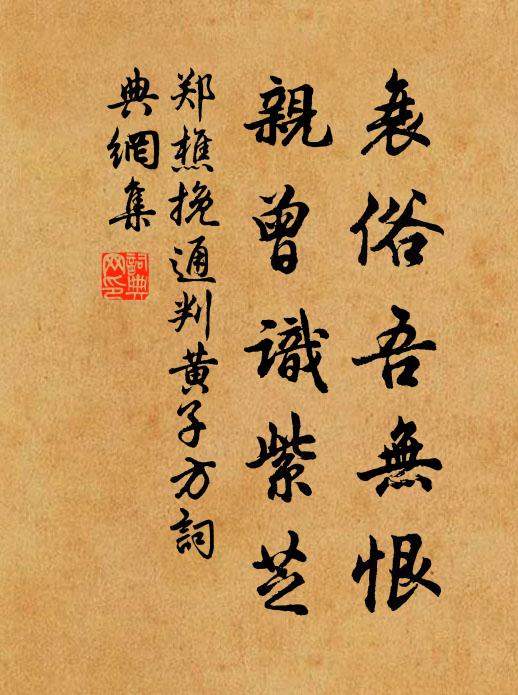 衰俗吾無恨
親曾識紫芝
郑樵挽通判黄子方詞
典網集
詞典網印